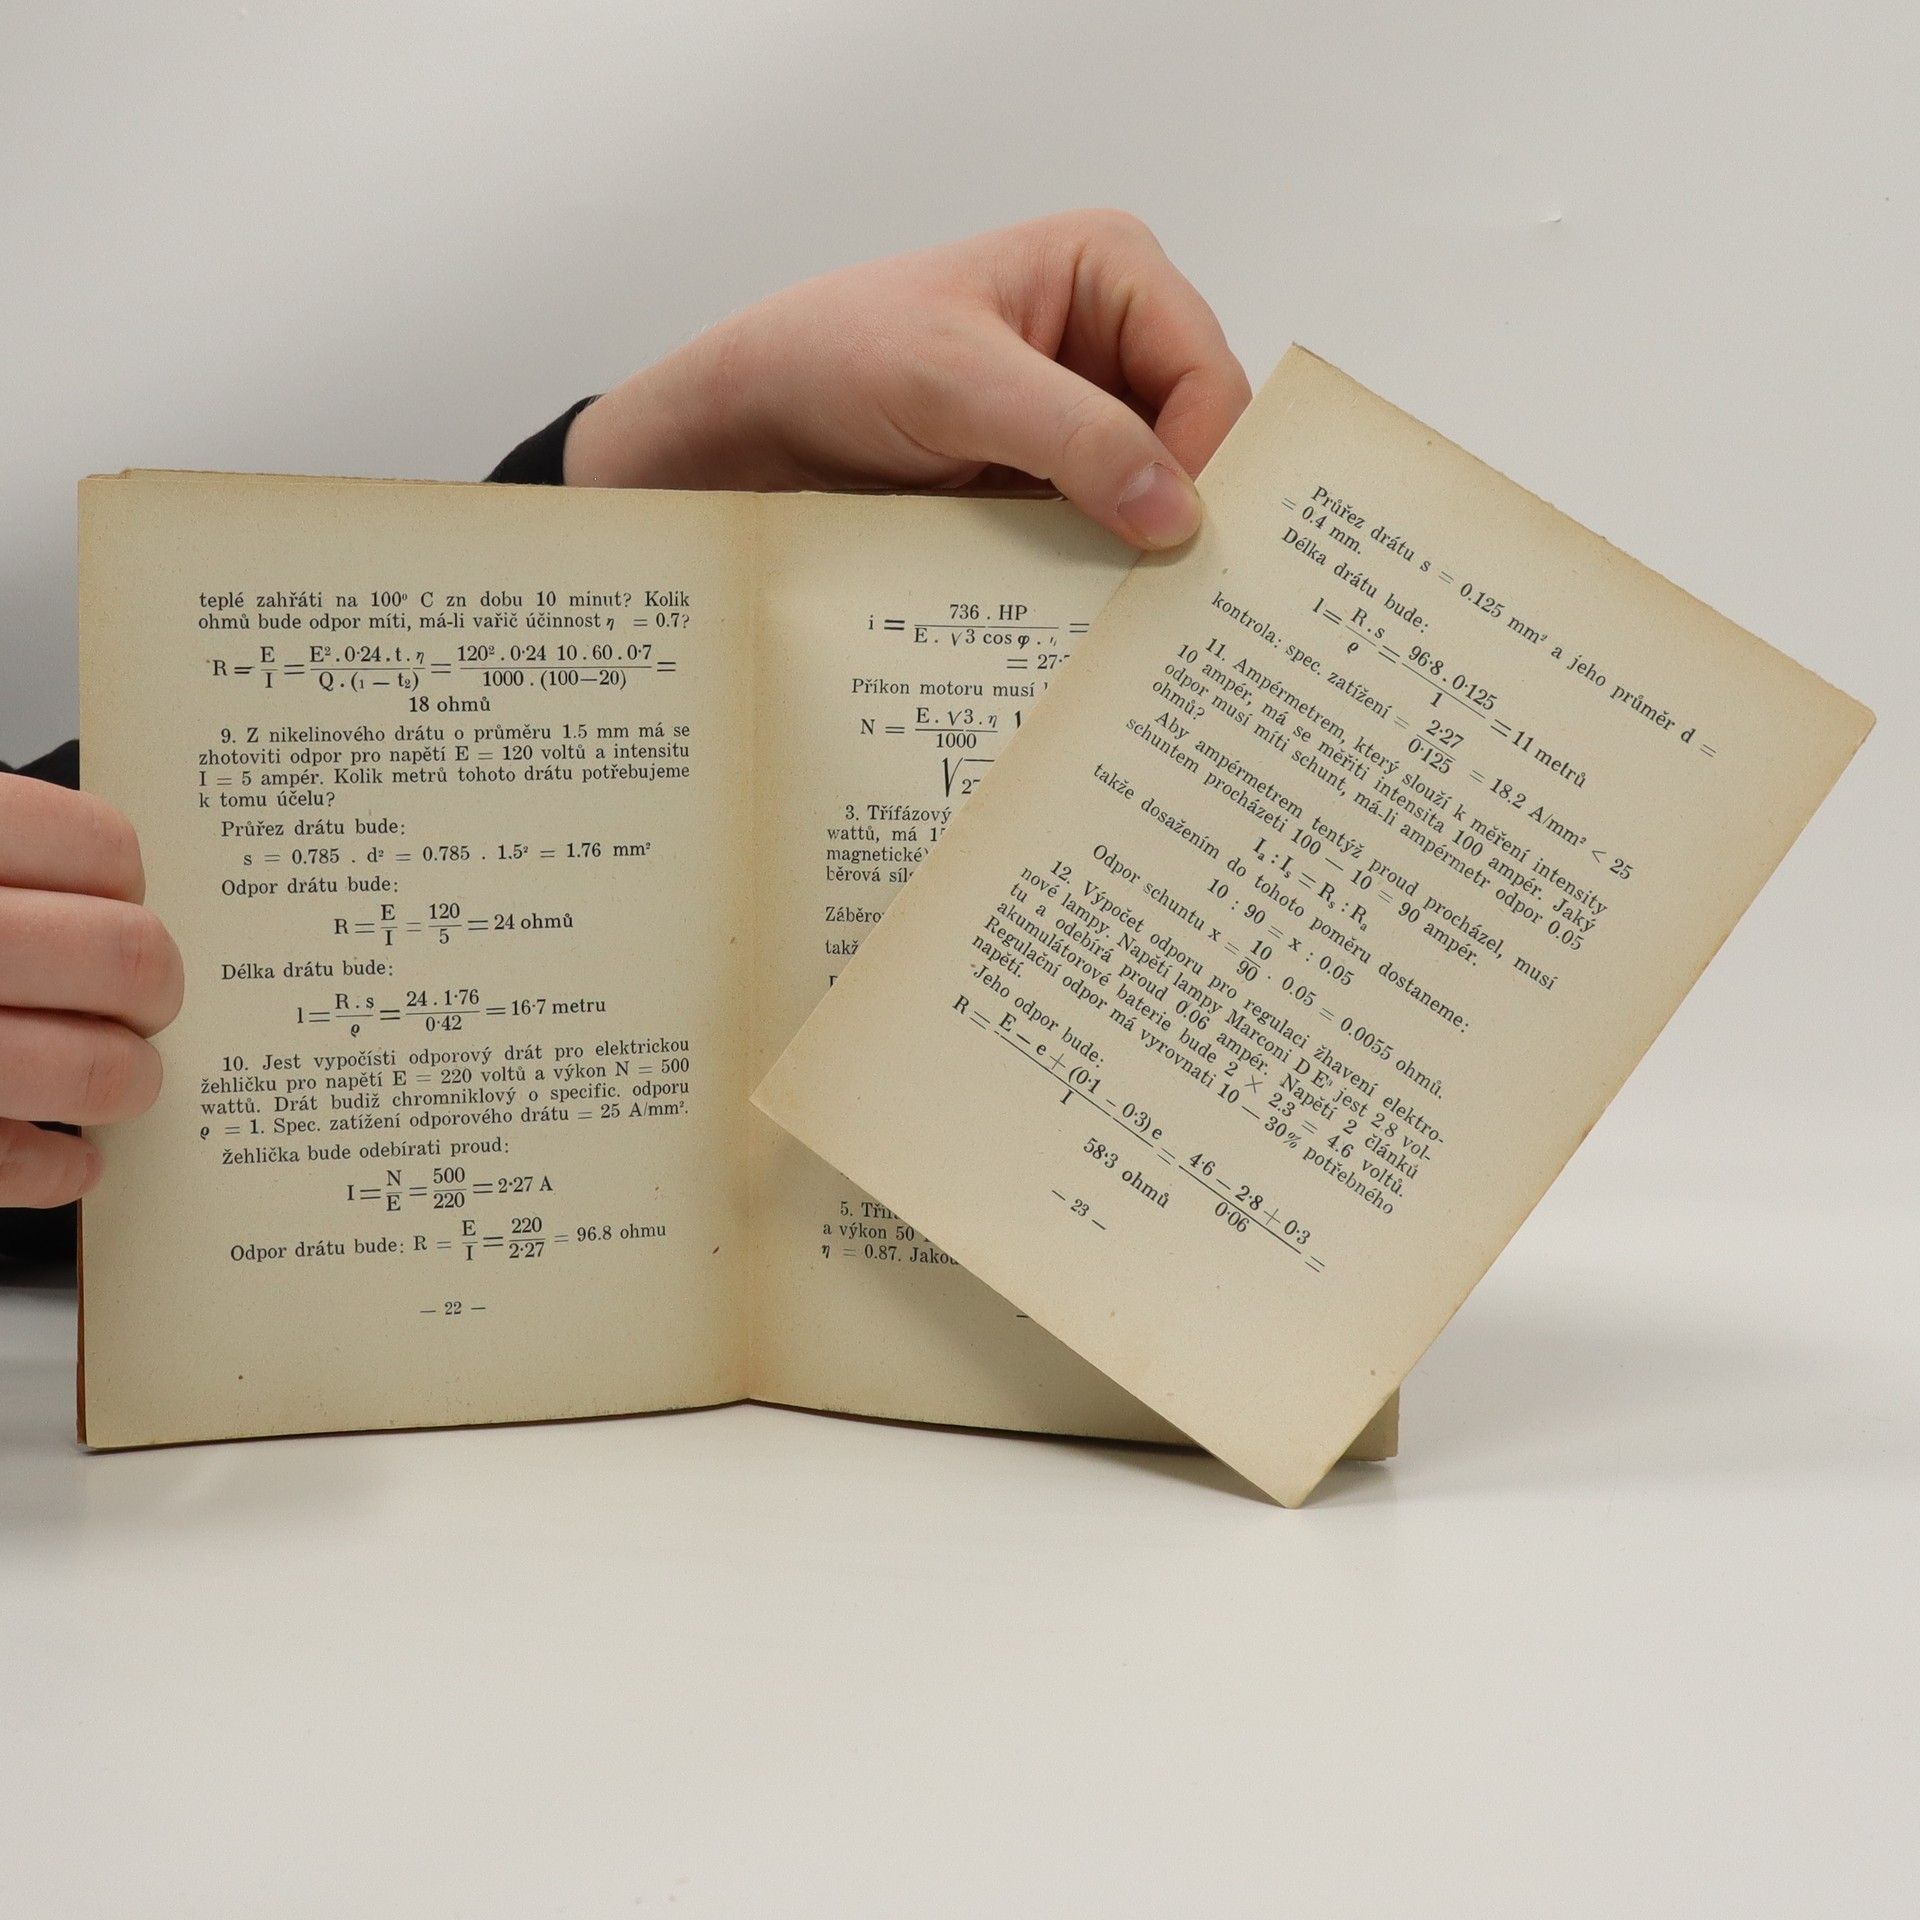 teplé zahřáti na 100⁰ C zn dobu 10 minut? Kolik
ohmů bude odpor míti, má-li vařič účinnost η = 0.7?
R = E/I = E² . 0·24 . t . η / Q . (₁ — t₂) = 120² . 0·24 10 . 60 . 0·7 / 1000 . (100—20) =
18 ohmů
9. Z nikelinového drátu o průměru 1.5 mm má se
zhotoviti odpor pro napětí E = 120 voltů a intensitu
I = 5 ampér. Kolik metrů tohoto drátu potřebujeme
k tomu účelu?
Průřez drátu bude:
s = 0.785 . d² = 0.785 . 1.5² = 1.76 mm²
Odpor drátu bude:
R = E/I = 120/5 = 24 ohmů
Délka drátu bude:
l = R . s / ϱ = 24 . 1·76 / 0·42 = 16·7 metru
10. Jest vypočísti odporový drát pro elektrickou
žehličku pro napětí E = 220 voltů a výkon N = 500
wattů. Drát budiž chromniklový o specific. odporu
ϱ = 1. Spec. zatížení odporového drátu = 25 A/mm².
Žehlička bude odebírati proud:
I = N/E = 500/220 = 2·27 A
Odpor drátu bude: R = E/I = 220/2·27 = 96.8 ohmu
— 22 —
i = 736 . HP / E . √3 cos φ . =
= 27·
Příkon motoru musí
N = E . √3 . η / 1000
3. Třífázový
wattů, má
magnetické
běrová
Záběro
takž
5.
a výkon 50
η = 0.87. Jakou
Průřez drátu s = 0.125 mm² a jeho průměr d =
= 0.4 mm.
Délka drátu bude:
l = R . s / ϱ = 96·8 . 0·125 / 1 = 11 metrů
kontrola: spec. zatížení = 2·27 / 0·125 = 18.2 A/mm² < 25
11. Ampérmetrem, který slouží k měření intensity
10 ampér, má se měřiti intensita 100 ampér. Jaký
odpor musí míti schunt, má-li ampérmetr odpor 0.05
ohmů?
Aby ampérmetrem tentýž proud procházel, musí
schuntem procházeti 100 — 10 = 90 ampér.
Iₐ : Iₛ = Rₛ : Rₐ
takže dosažením do tohoto poměru dostaneme:
10 : 90 = x : 0.05
Odpor schuntu x = 10/90 . 0.05 = 0.0055 ohmů.
12. Výpočet odporu pro regulaci žhavení elektro-
nové lampy. Napětí lampy Marconi D E³ jest 2.8 vol-
tu a odebírá proud 0.06 ampér. Napětí 2 článků
akumulátorové baterie bude 2 × 2.3 = 4.6 voltů.
Regulační odpor má vyrovnati 10 — 30% potřebného
napětí.
Jeho odpor bude:
R = E — e + (0·1 — 0·3) e / I = 4·6 — 2·8 + 0·3 / 0·06 =
58·3 ohmů
— 23 —